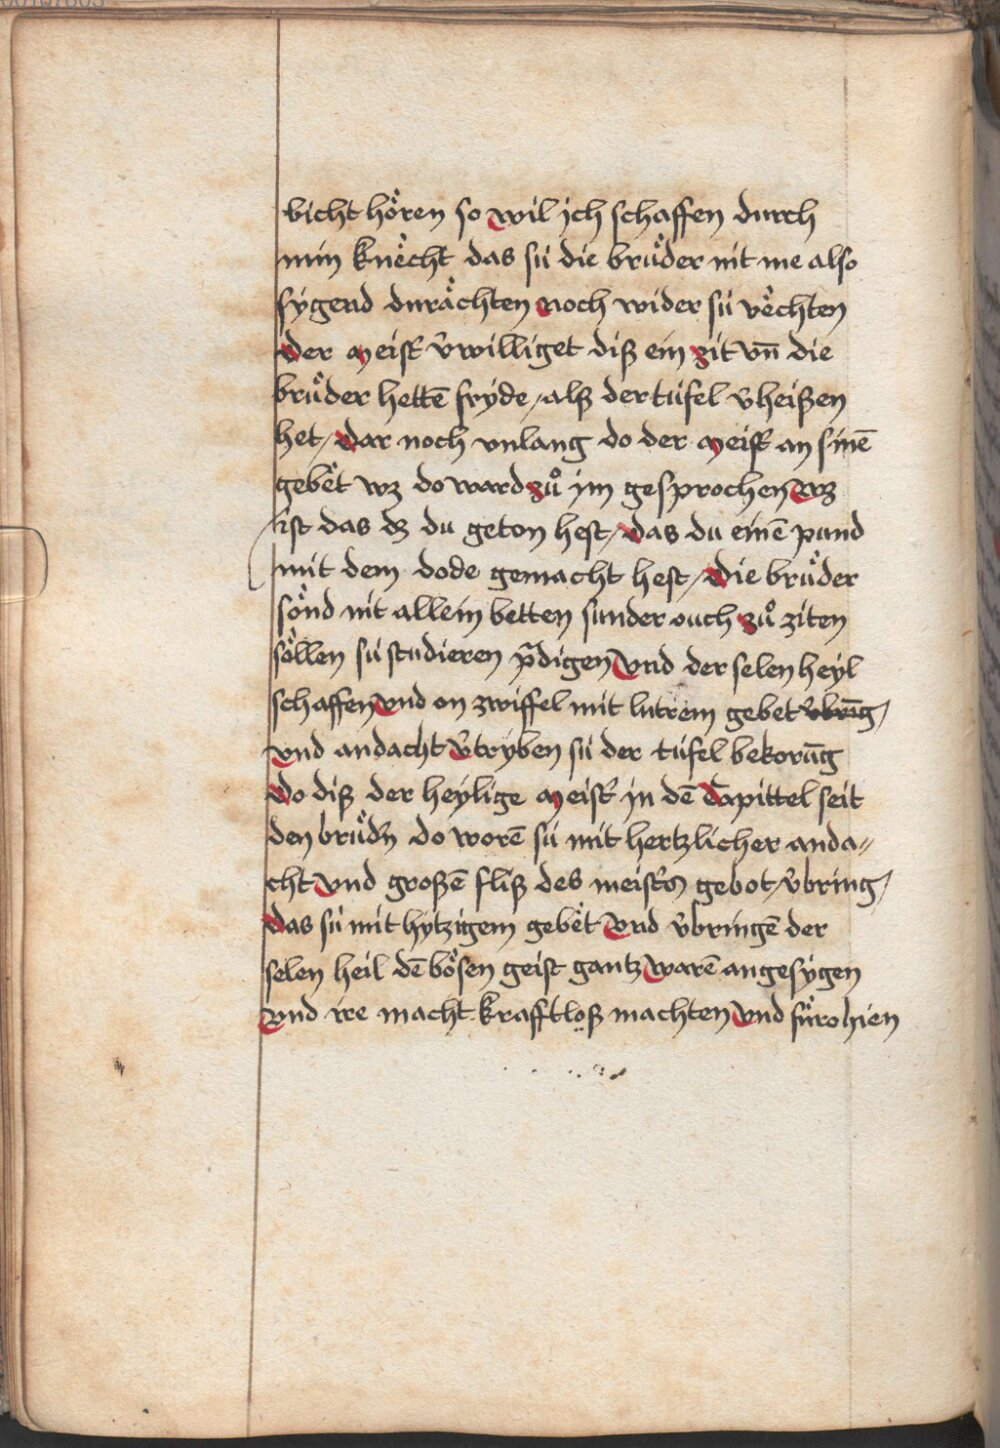 bicht hoͤren so wil jch schaffen durch
min knëcht das sú die bruͤder nit me also
sygend durächten noch wider sú vëchten
der meist̛ v̛williget diß ein zit vn̄ die
bruͤder hettē fryde / alß der túfel v̛heißen
het / dar noch vnlang do der meist̛ an sinē
gebët wz do ward zuͦ im gesprochen wz
ist das dz du geton hest / das du einē pund
mit dem dode gemacht hest / Die bruͤder
soͤnd nit allein betten sunder ouch zuͦ ziten
soͤllen sú studieren p̄digen vnd der selen heyl
schaffen vnd on zwiffel mit lutrem gebet v̛bring /
vnd andacht v̛tryben sú der túfel bekorūg
Do diß der heylige meist̛ in dē Capittel seit
den bruͤdn̄ do worē sú mit hertzlicher anda〃
cht vnd großē fliß des meist̛s gebot / v̛bring /
das sú mit hytzigem gebët vnd v̛bringē der
selen heil dē boͤsen geist gantz warē angesygen
vnd ire macht krafftloß machten vnd fúrohien